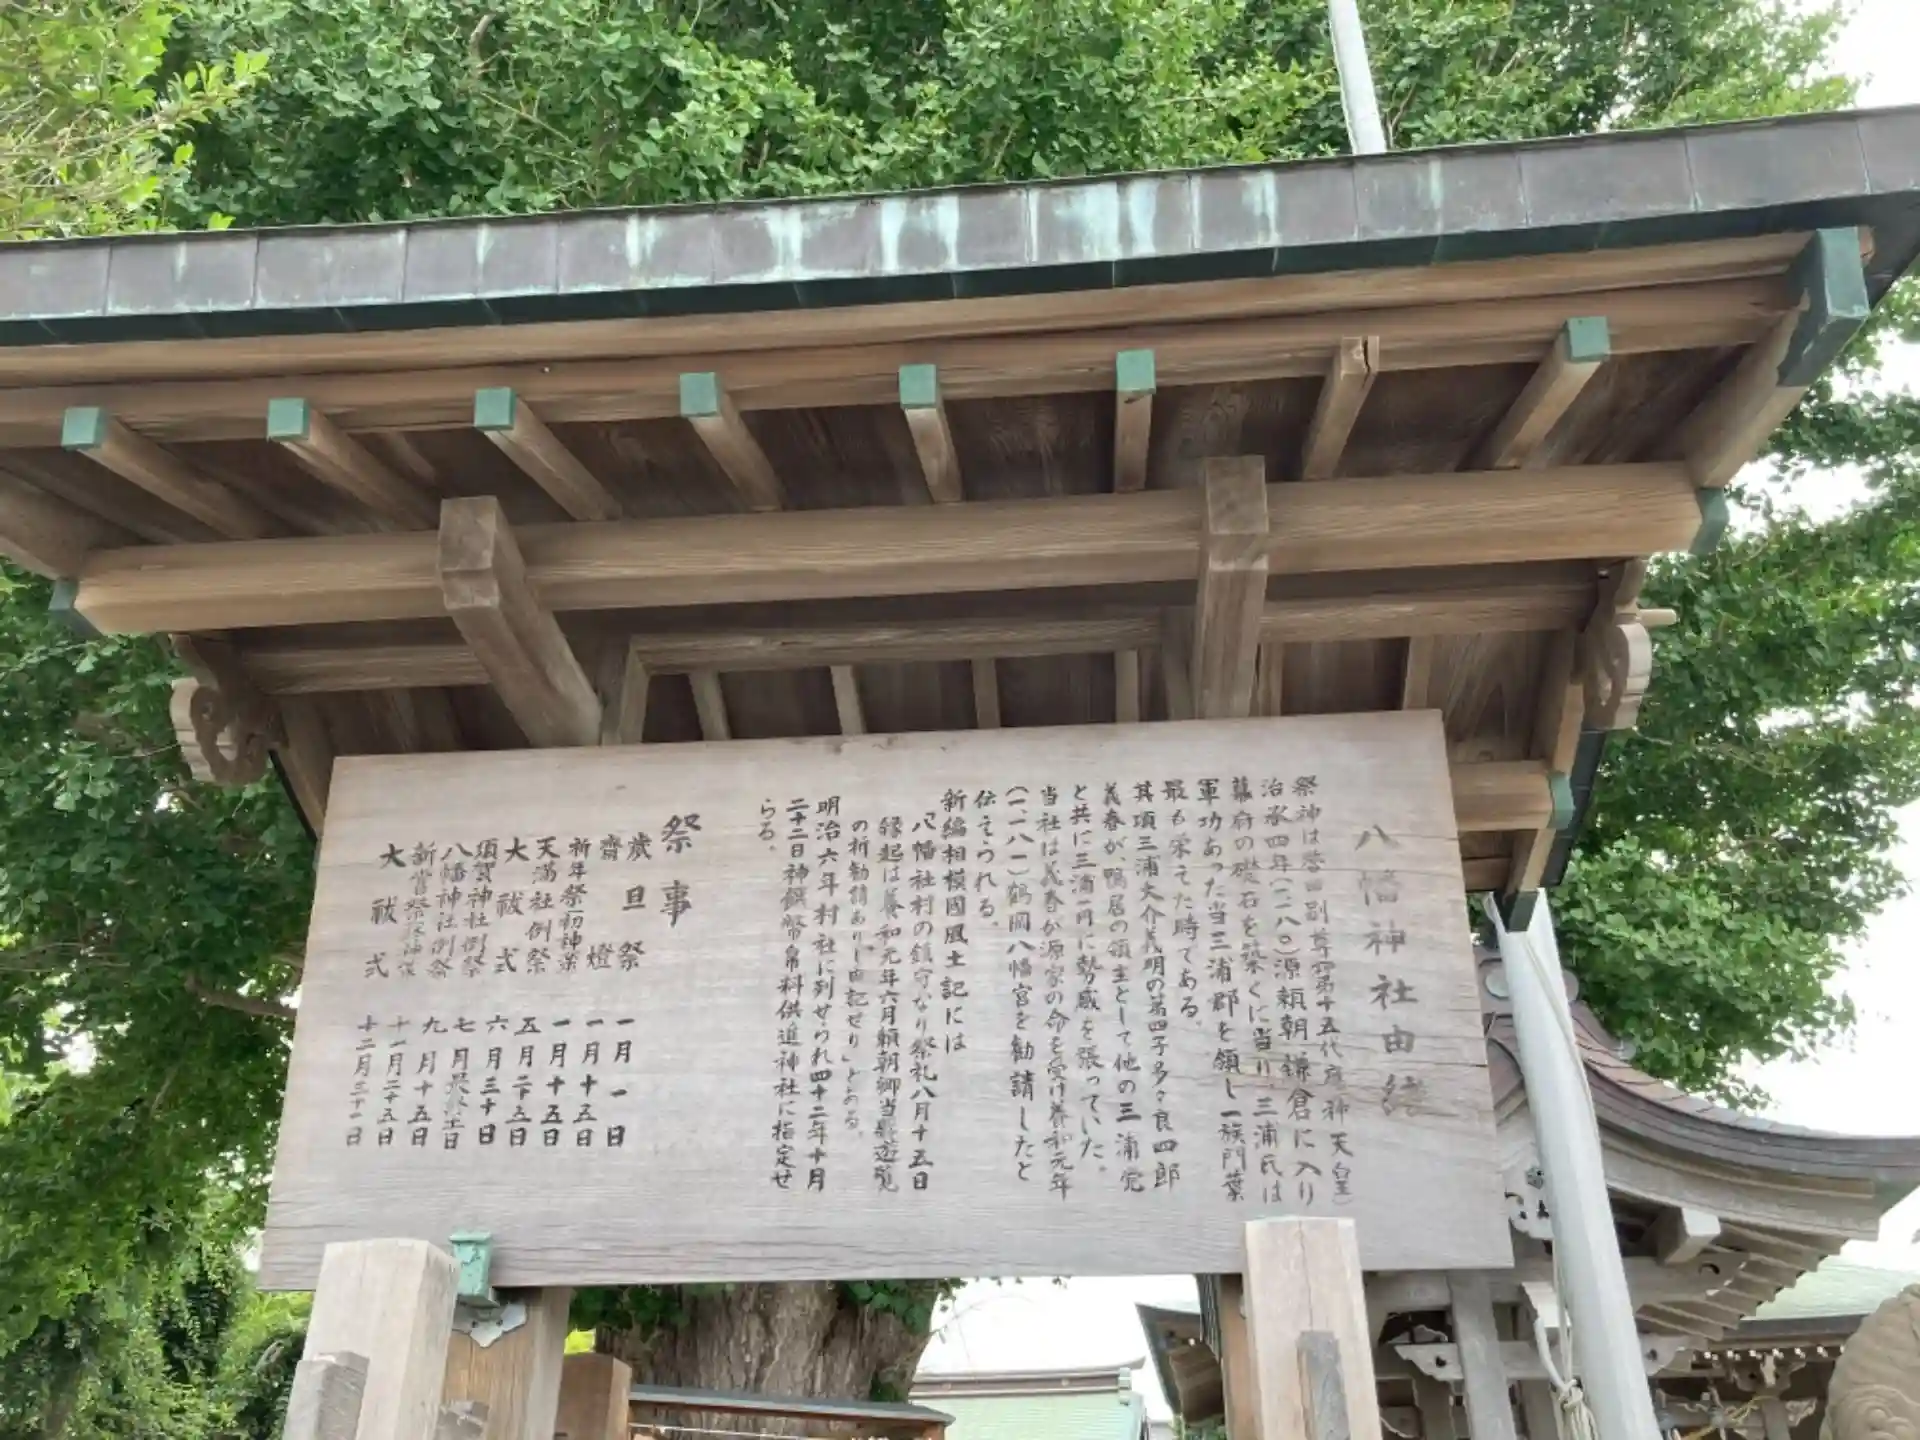 八幡神社由緒
祭神は誉田別尊(第十五代應神天皇)
治承四年(一一八〇)源頼朝鎌倉に入り
幕府の礎石を築くに当り、三浦氏は
軍功あった当三浦郡を領し一族門葉
最も栄えた時である。
其頃三浦大介義明の第四子多々良四郎
義春が、鴨居の領主として他の三浦党
と共に三浦一円に勢威を張っていた。
当社は義春が源家の命を受け養和元年
(一一八一)鶴岡八幡宮を勧請したと
伝えられる。
新編相模國風土記には
「八幡社村の鎮守なり祭礼八月十五日
縁起は養和元年六月頼朝郷当県遊覧
の折勧請ありし由記せり」とある。
明治六年村社に列せられ四十二年十月
二十二日神饌幣帛料供進神社に指定せ
らる。
祭事
歳旦祭 一月一日
齋燈 一月十五日
祈年祭初神楽 一月十五日
天満社例祭 五月二十五日
大祓式 六月三十日
須賀神社例祭 七月最終土日
八幡神社例祭 九月十五日
新嘗祭 十一月二十五日
大祓式 十二月三十一日